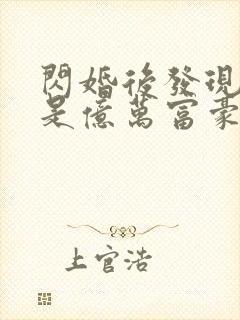 閃婚後發現
是億萬富豪
上官浩